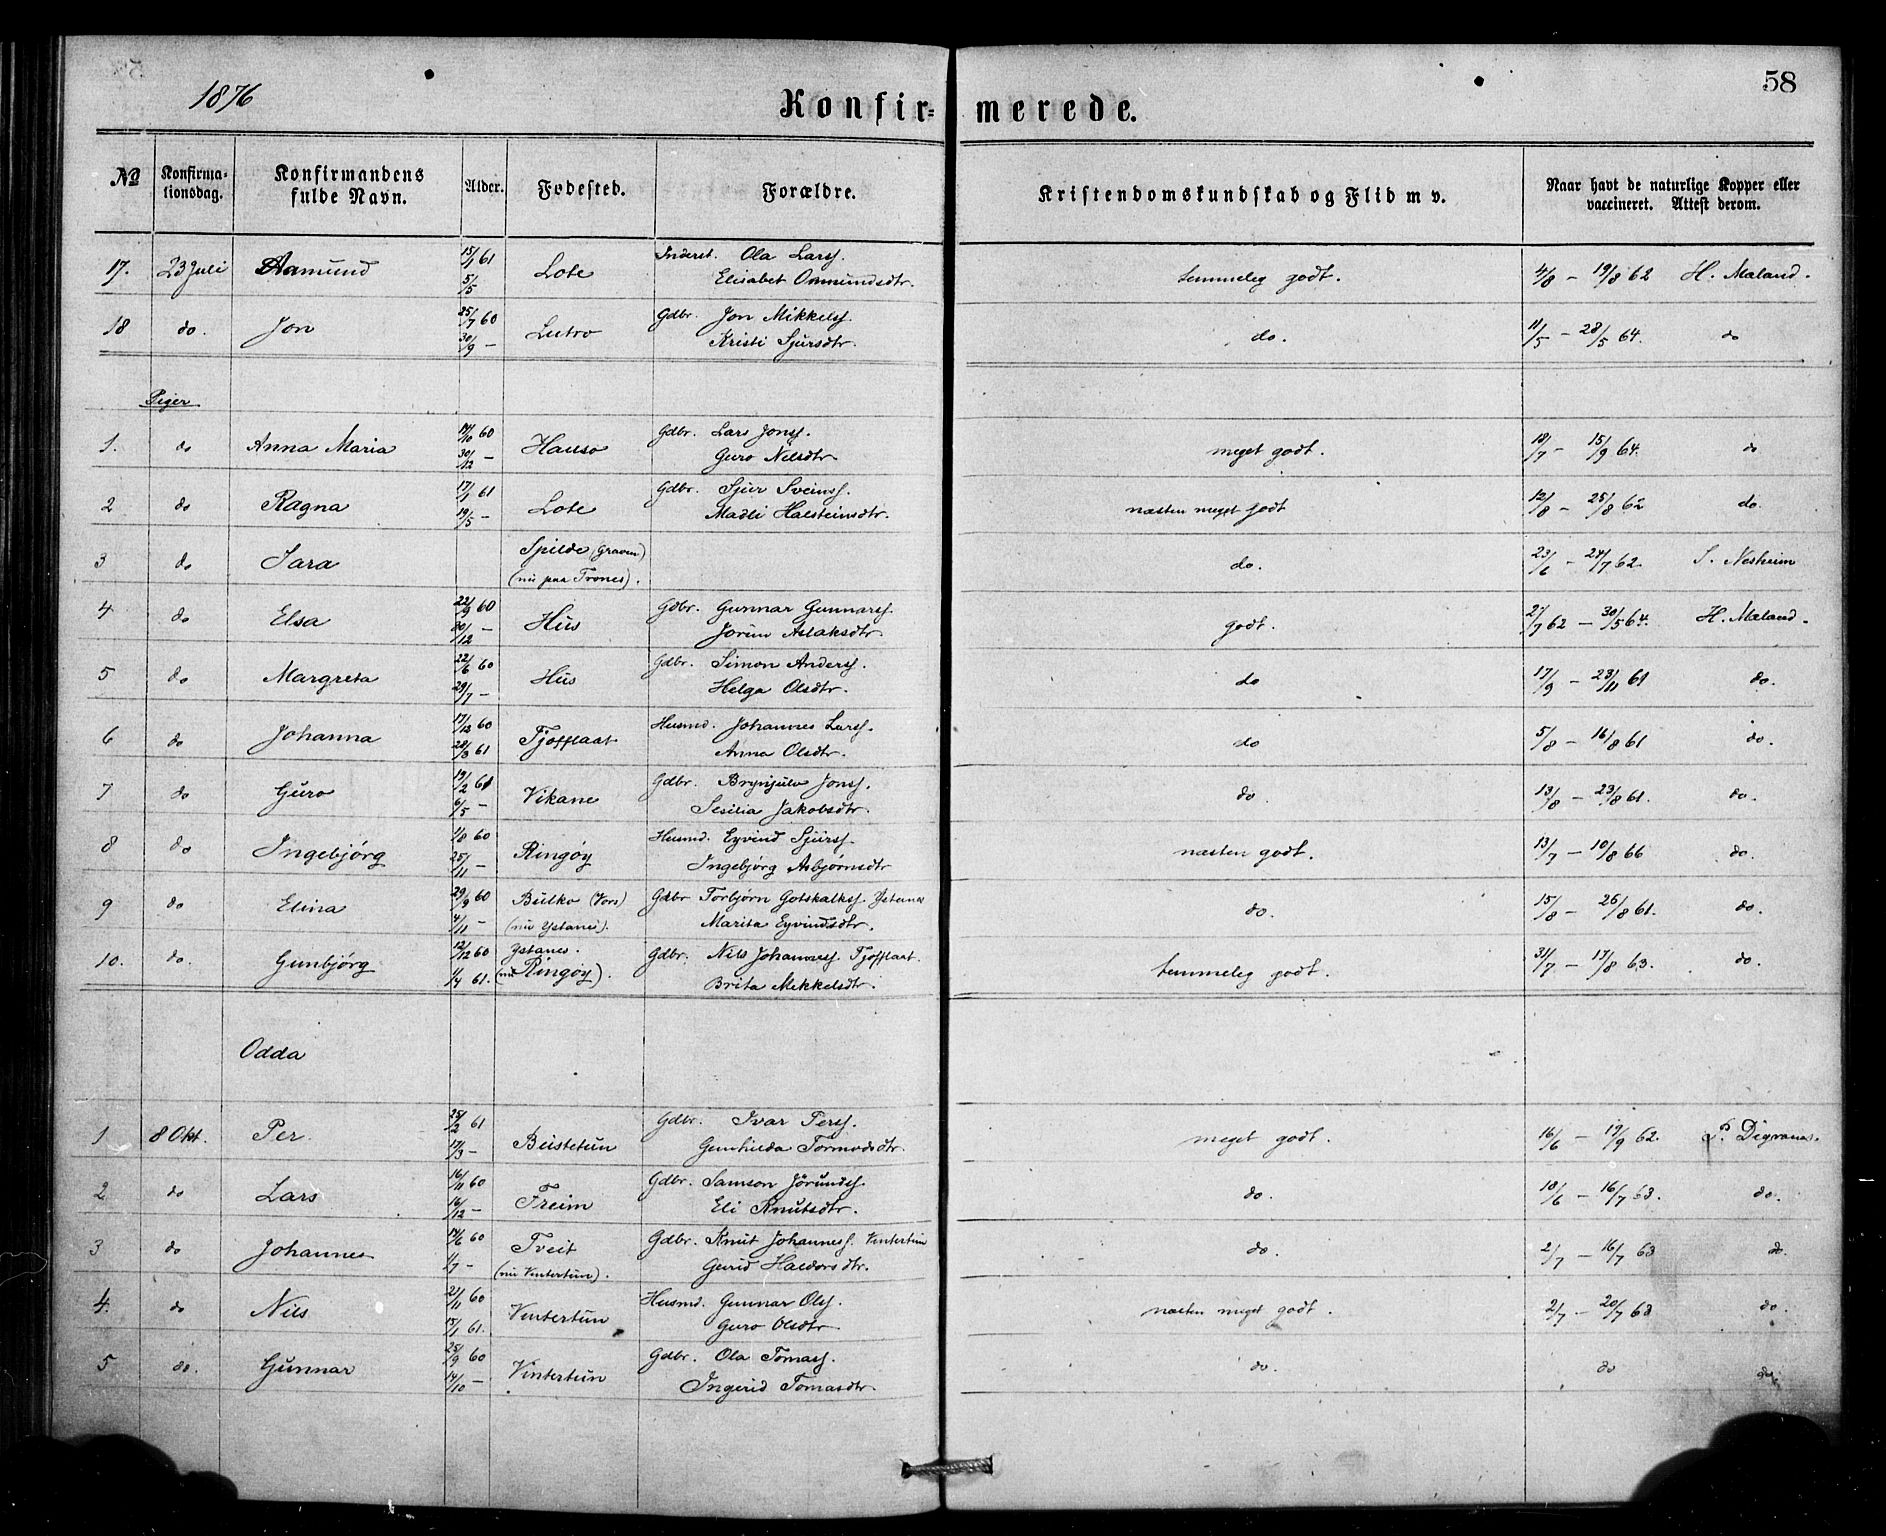 1876
58
Konfir- merede.
No Konfirma-tionsdag. Konfirmandens fulde Navn. Alder. Fødested. Forældre. Kristendomskundskab og Flid m v. Naar havt de naturlige Kopper eller vaccineret. Attest derom.
17. 23 Juli Aamund 15/1 61 Lote Inderst. Ola Larss. temmeleg godt. 4/8 - 19/8 62 H. Mæland.
5/5 Elisabet Ommundsdtr.
18 do. Jon 25/7 60 Lutro Gdbr. Jon Mikkelss. do. 11/5 - 28/5 64. do
30/9 - Kristi Sjursdtr.
Piger
1. do Anna Maria 14/10 60 Hauso Gdbr. Lars Jonss. meget godt. 18/7 - 15/9 64. do
30/12 - Guro Nilsdtr.
2 do Ragna 17/1 61 Lote Gdbr. Sjur Sveinss. næsten meget godt 12/8 - 25/8 62 do.
19/5 - Madli Halsteinsdtr.
3 do Sara Spilde (Graven) do. 23/6 - 24/7 62. S. Nesheim
(nu paa Trones).
4 do Elsa 22/9 60 Hus Gdbr. Gunnar Gunnarss. godt. 27/7 62 - 30/5 64. H. Mæland.
30/12 - Jorun Aslaksdtr.
5 do Margreta 22/6 60 Hus Gdbr. Simon Anderss. do 17/9 - 23/11 61 do.
29/7 - Helga Olsdtr.
6 do Johanna 17/12 60 Tjoflaat Husmd. Johannes Larss. do 5/8 - 16/8 61 do.
28/3 61 Anna Olsdtr.
7 do Guro 19/2 61 Vikane Gdbr. Brynjulv Jonss. do. 13/8 - 23/8 61. do.
6/5 - Sesilia Jakobsdtr.
8 do Ingebjørg 1/8 60 Ringøy Husmd. Eyvind Sjurss. næsten godt. 13/7 - 10/8 66 do.
25/11 - Ingebjørg Asbjørnsdtr
9 do Elina 29/9 60 Bulko (Vors) Gdbr Torbjørn Gotskalkss. Ystanes do. 15/8 - 26/8 61. do.
4/11 - (nu Ystanes). Marita Eyvindsdtr.
10. do. Gunbjørg 12/12 60 Ystanes. Gdbr. Nils Johanness. Tjoflaat. temmeleg godt. 31/7 - 17/8 63. do.
1/4 61. (nu Ringøy). Brita Mikkelsdtr.
Odda
1 8 Okt. Per. 25/2 61 Bustetun Gdbr. Ivar Perss. meget godt. 16/6 - 19/9 62. P. Digranes.
17/3 - Gunhilda Tormodsdtr.
2 do Lars 16/11 60 Freim Gdbr. Samson Jörundss. do. 18/6 - 16/7 63. do.
16/12 - Eli Knutsdtr.
3 do Johannes 14/6 60 Tveit Gdbr. Knut Johanness. Vintertun do. 2/7 - 16/7 63 do.
1/7 - (nu Vintertun). Gurid Haldorsdtr.
4. do Nils 21/11 60 Vintertun Husmd. Gunnar Olss. næsten meget godt. 2/7 - 20/7 63 do.
15/1 61. Guro Olsdtr
5 do. Gunnar 25/9 60 Vintertun Gdbr. Ola Tomass. do. do do
14/10 - Ingerid Tomasdtr.